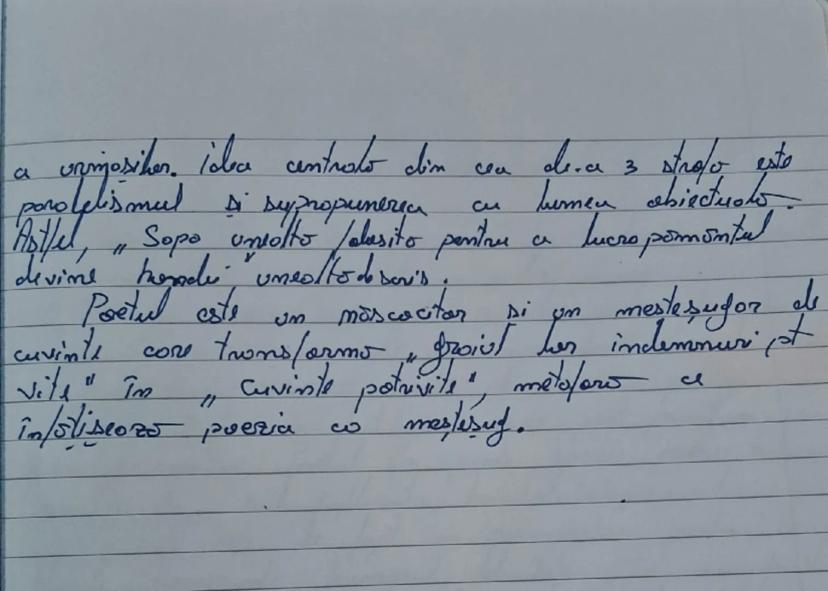 a urmașilor. Idea centrală din cea de-a 3 strofă este
paralelismul și sypropunerea cu lumea obiectuală.
Astfel, „Sapa unealtă folosită pentru a lucra pământul
devine unealtă de scris.
Poetul este un măscăcitor și un meșteșugar de
cuvinte care transformă „graiul lor îndemnuri pt
vite" în „cuvinte potrivite", metafora ce
înfățișează poezia ca meșteșug.